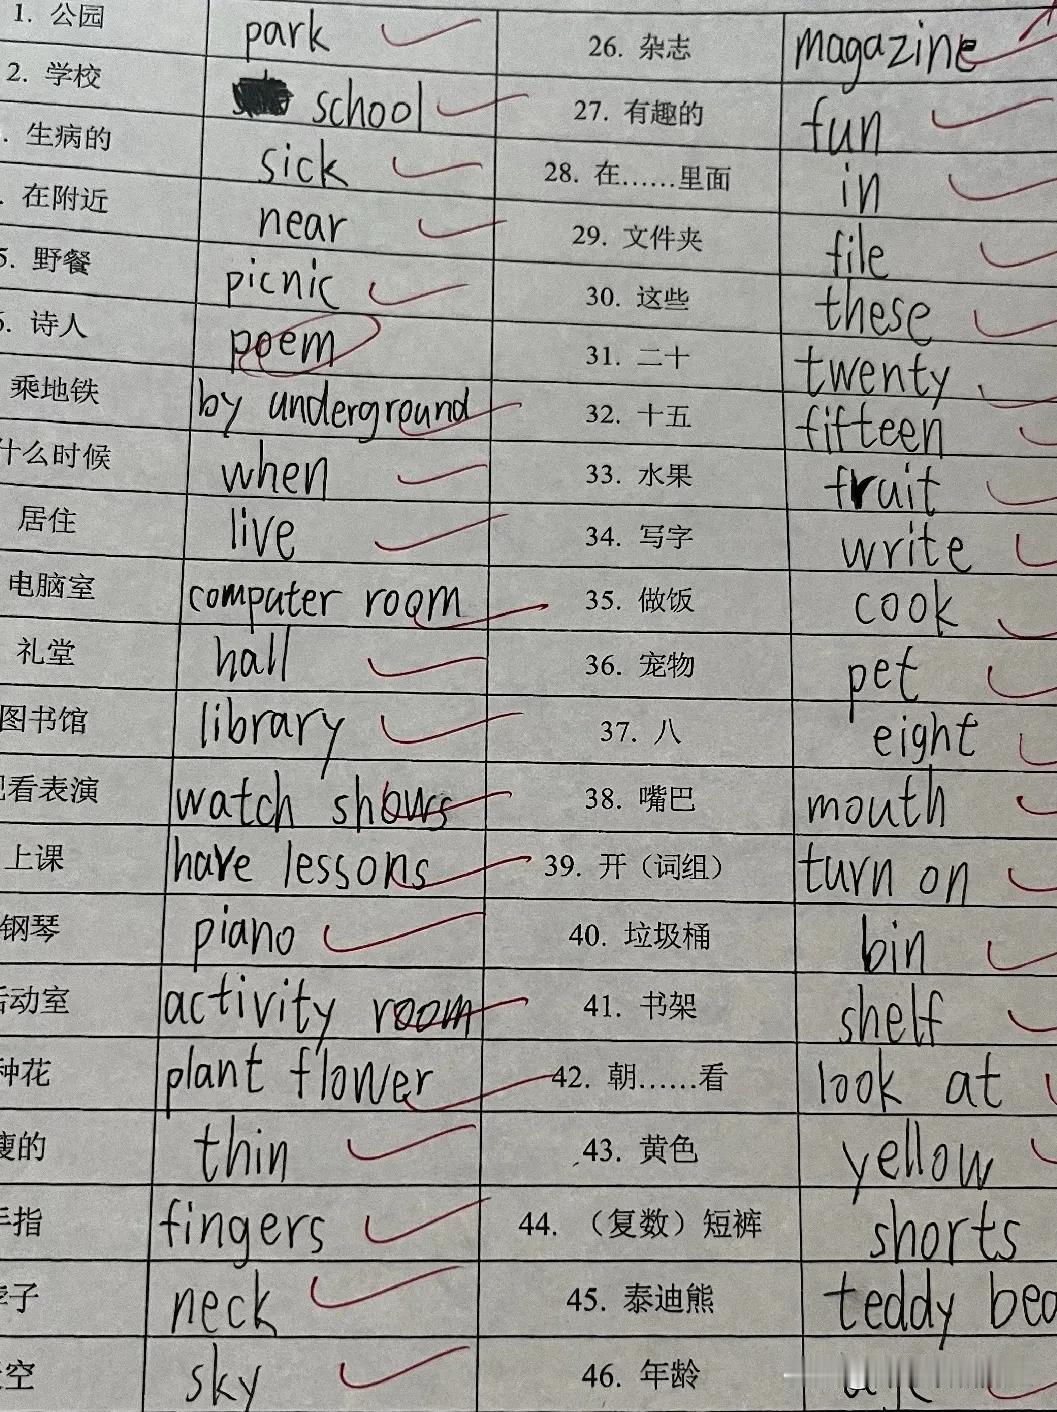 1. 公园 park 26. 杂志 magazine
2. 学校 school 27. 有趣的 fun
. 生病的 sick 28. 在……里面 in
. 在附近 near 29. 文件夹 file
5. 野餐 picnic 30. 这些 these
6. 诗人 poem 31. 二十 twenty
乘地铁 by underground 32. 十五 fifteen
什么时候 when 33. 水果 fruit
居住 live 34. 写字 write
电脑室 computer room 35. 做饭 cook
礼堂 hall 36. 宠物 pet
图书馆 library 37. 八 eight
观看表演 watch shows 38. 嘴巴 mouth
上课 have lessons 39. 开（词组） turn on
钢琴 piano 40. 垃圾桶 bin
活动室 activity room 41. 书架 shelf
种花 plant flower 42. 朝……看 look at
瘦的 thin 43. 黄色 yellow
手指 fingers 44. （复数）短裤 shorts
脖子 neck 45. 泰迪熊 teddy
空 sky 46. 年龄